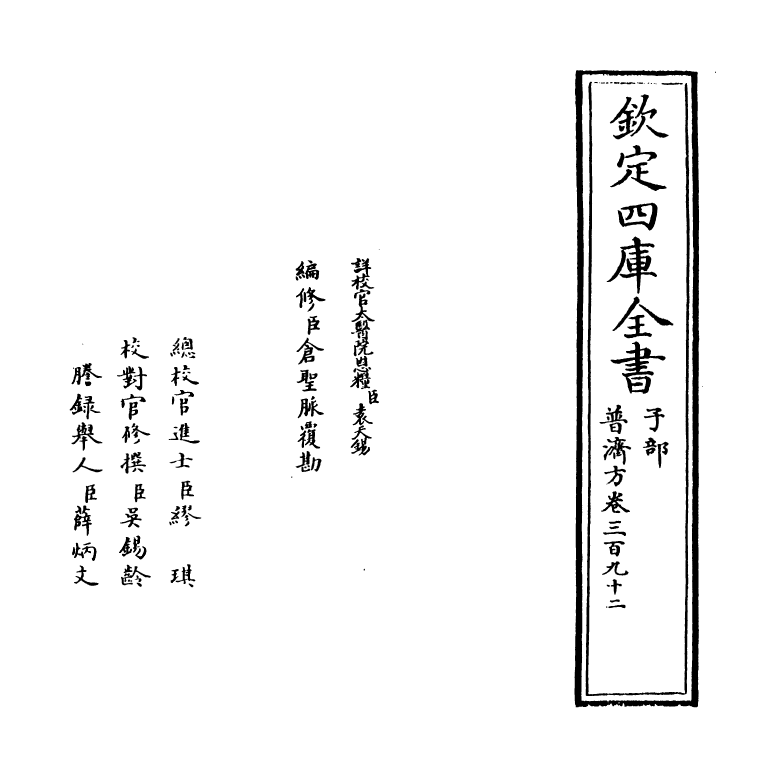 欽定四庫全書
子部
普濟方卷三百九十二
詳校官太醫院恩糧臣袁天錫
編修臣倉聖脈覆勘
總校官進士臣繆琪
校對官修撰臣吳錫齡
謄錄舉人臣薛炳文